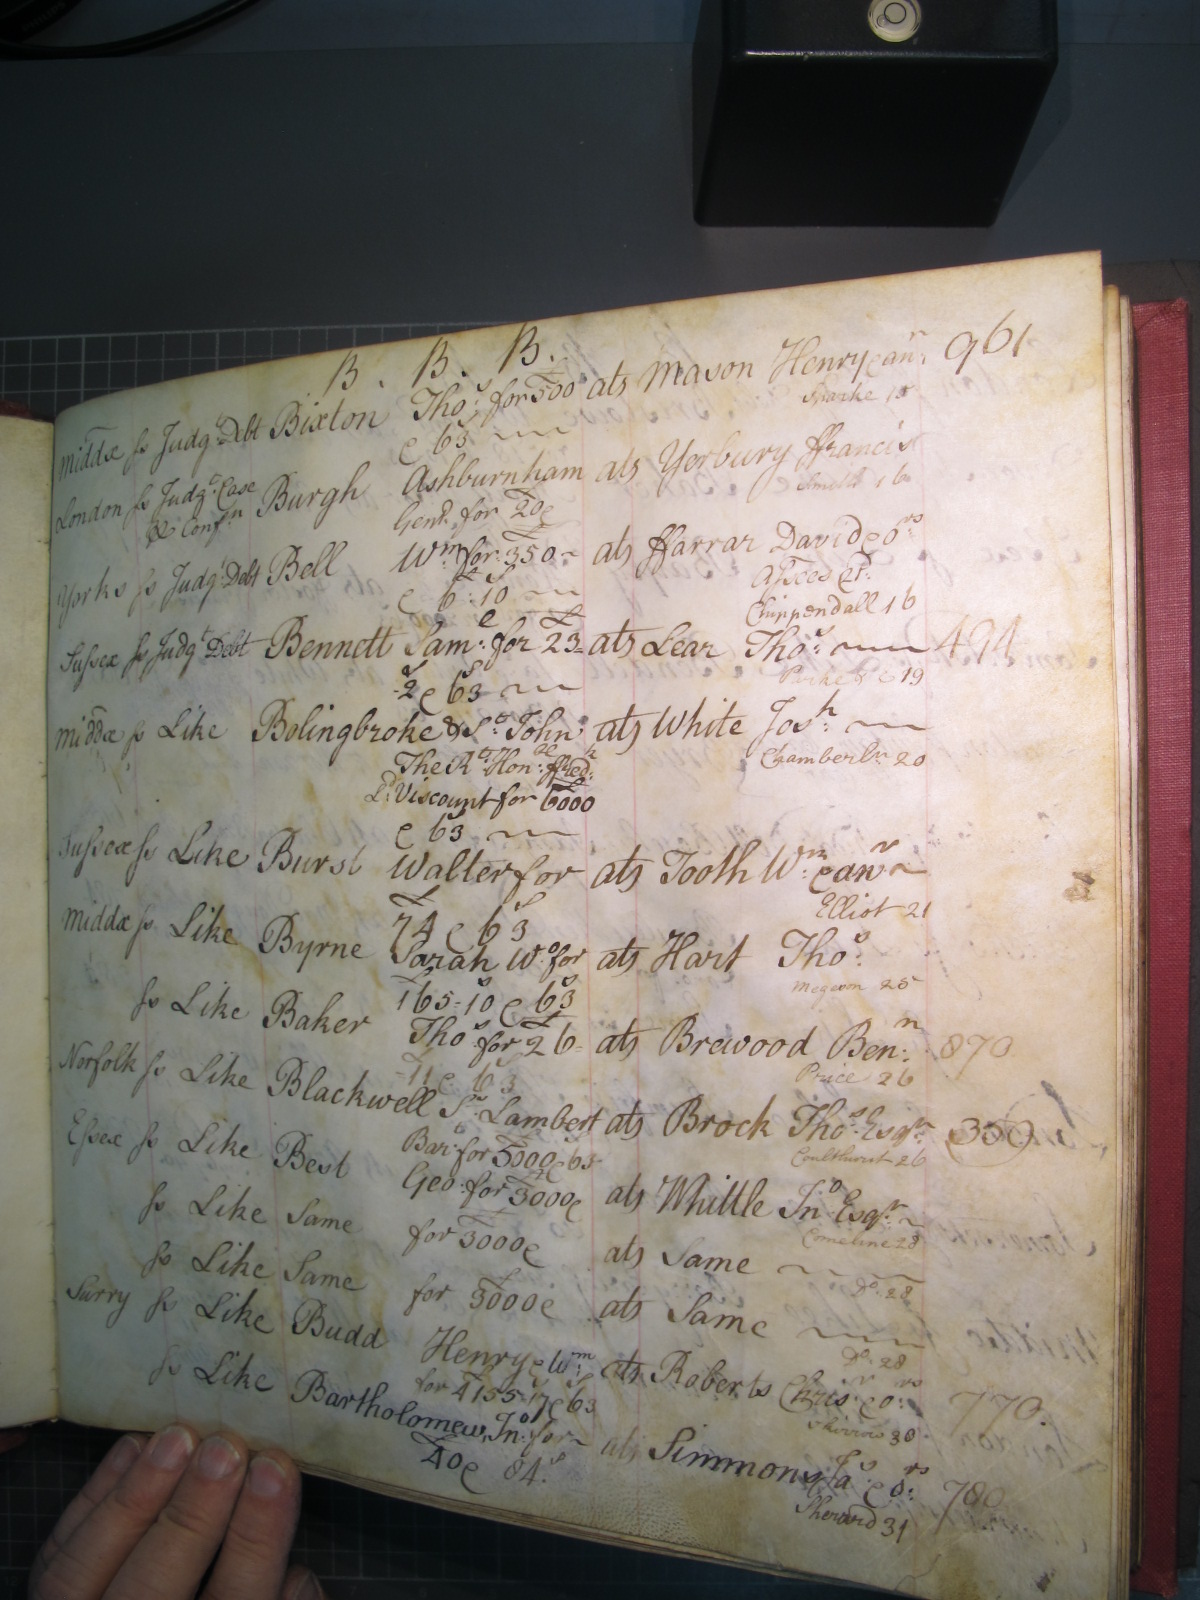 B . B . B.
Middx ss Judgt Debt Bixton Thos for 500 ats Mason Henry & anr 961
& 63s Sparke 15
London ss Judgt Case Burgh Ashburnham ats Yerbury ffrancis
& Confn Gent for 20 & Smith 16
Yorks ss Judgt Debt Bell Wm for 350 ats ffarrar David & ors
& 6:10 Assees &c
Chippendall 16
Sussex ss Judgt Debt Bennett Saml for 23 ats Lear Thos 494
2 & 63s 19
Middx ss Like Bolingbroke & St John ats White Josh
The Rt Honble ffredk Chamberln 20
Ld Viscount for 6000
& 63s
Sussex ss Like Burst Walter for ats Tooth Wm & anr
74 & 63s Elliot 21
Middx ss Like Byrne Sarah Wo for ats Hart Thos
165-10s & 63s 25
ss Like Baker Thos for 26 ats Brewood Benn 870
11 & 63s Price 26
Norfolk ss Like Blackwell Sr Lambert ats Brock Thos Esqr 350
Bart for 5000 & 63s Coulthurst 26
Essex ss Like Best Geo for 3000 & ats Whittle Jno Esqr
28
ss Like Same for 3000 & ats Same
Do 28
ss Like Same for 3000 & ats Same
Do 28
Surry ss Like Budd Henry & Wm ats Roberts Chris & ors 770.
for 4155-17 & 63s 30
ss Like Bartholomew Jno for ats Simmons Jas & ors 780
40 & 84s Sherrard 31